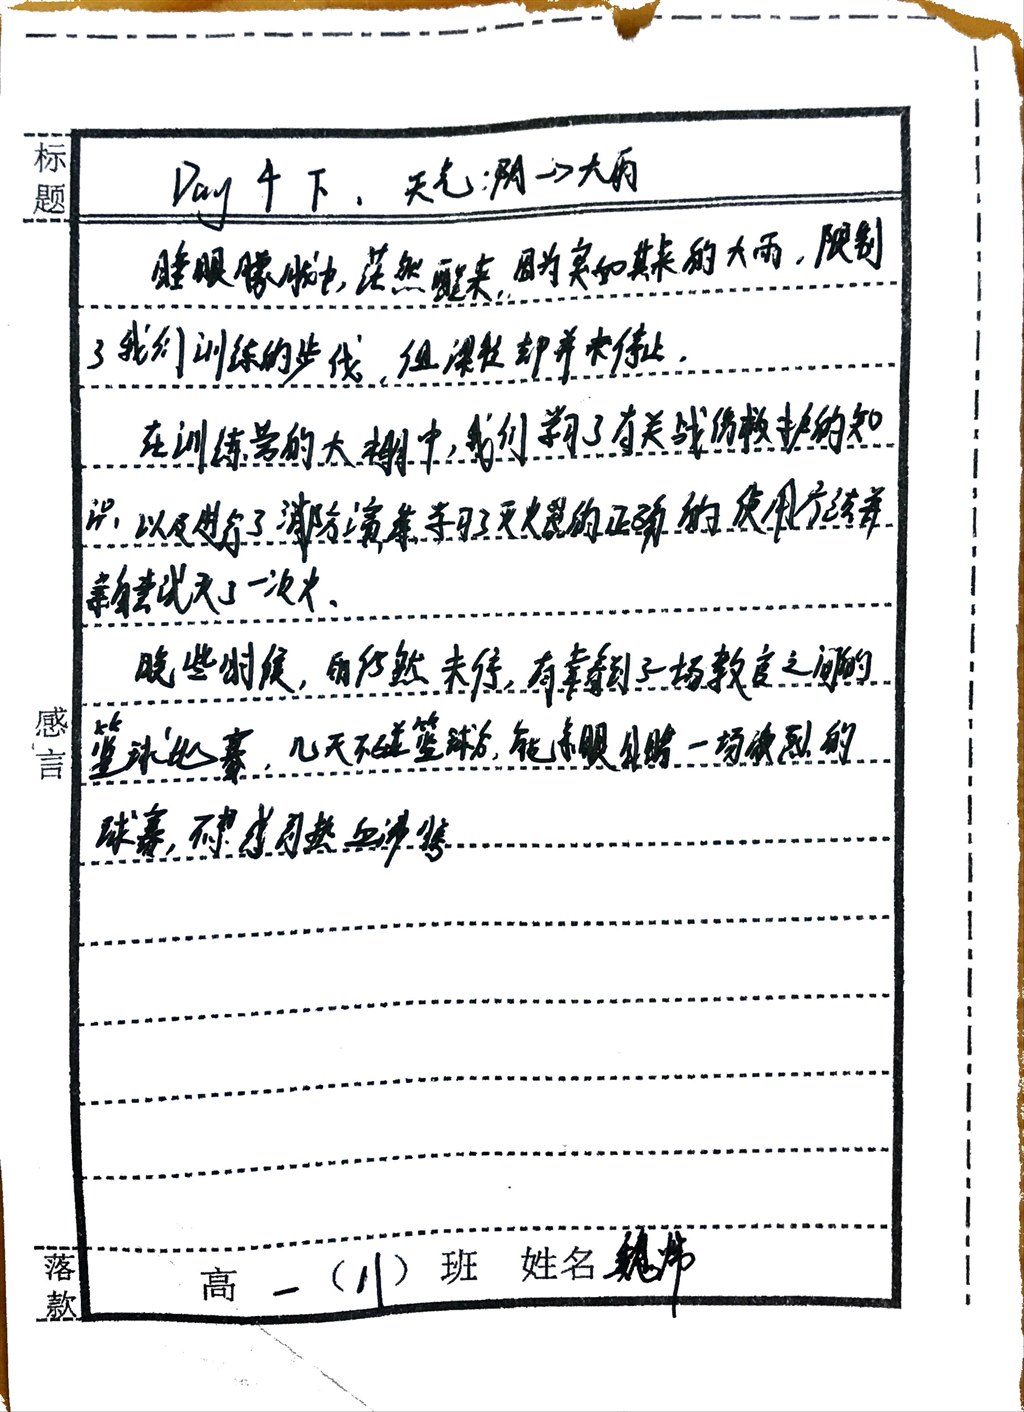 标题
Day 4 下. 天气:阴→大雨
睡眼朦胧中,茫然醒来,因为突如其来的大雨,限制
了我们训练的步伐,但课程却并未停止.
在训练营的大棚中,我们学习了有关战伤救护的知
识,以及进行了消防演集学习了灭火器的正确的使用方法并
亲自尝试灭了一次火.
晚些时候,雨仍然未停,有幸看到了一场教官之间的
感言
篮球比赛,几天不碰篮球的,能亲眼目睹一场激烈的
球赛,不禁感到热血沸腾
落款
高一(11)班 姓名 魏炜